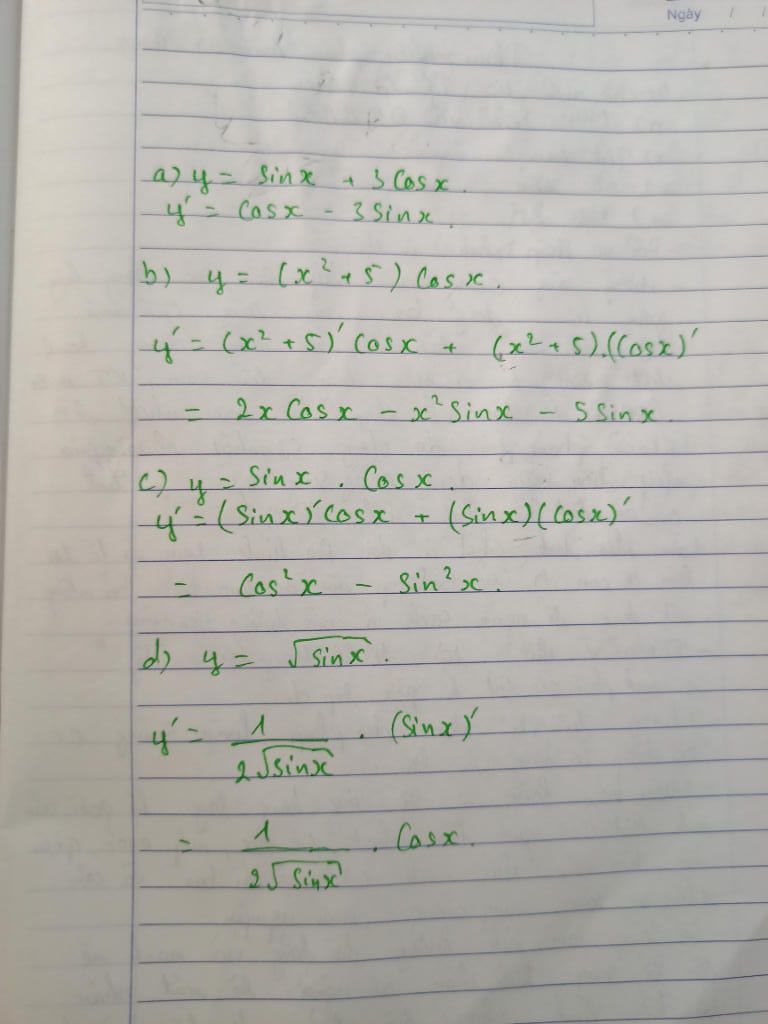 Ngày / /
a) y = sinx + 3 Cosx.
y' = Cosx - 3 Sinx.
b) y = (x² + 5) Cosx.
y' = (x² + 5)' Cosx + (x² + 5).(Cosx)'
= 2x Cosx - x² Sinx - 5 Sinx.
c) y = Sinx . Cosx.
y' = (Sinx)'Cosx + (Sinx)(Cosx)'
= Cos²x - Sin²x.
d) y = √sinx.
y' = 1/(2√sinx) . (Sinx)'
= 1/(2√sinx) . Cosx.